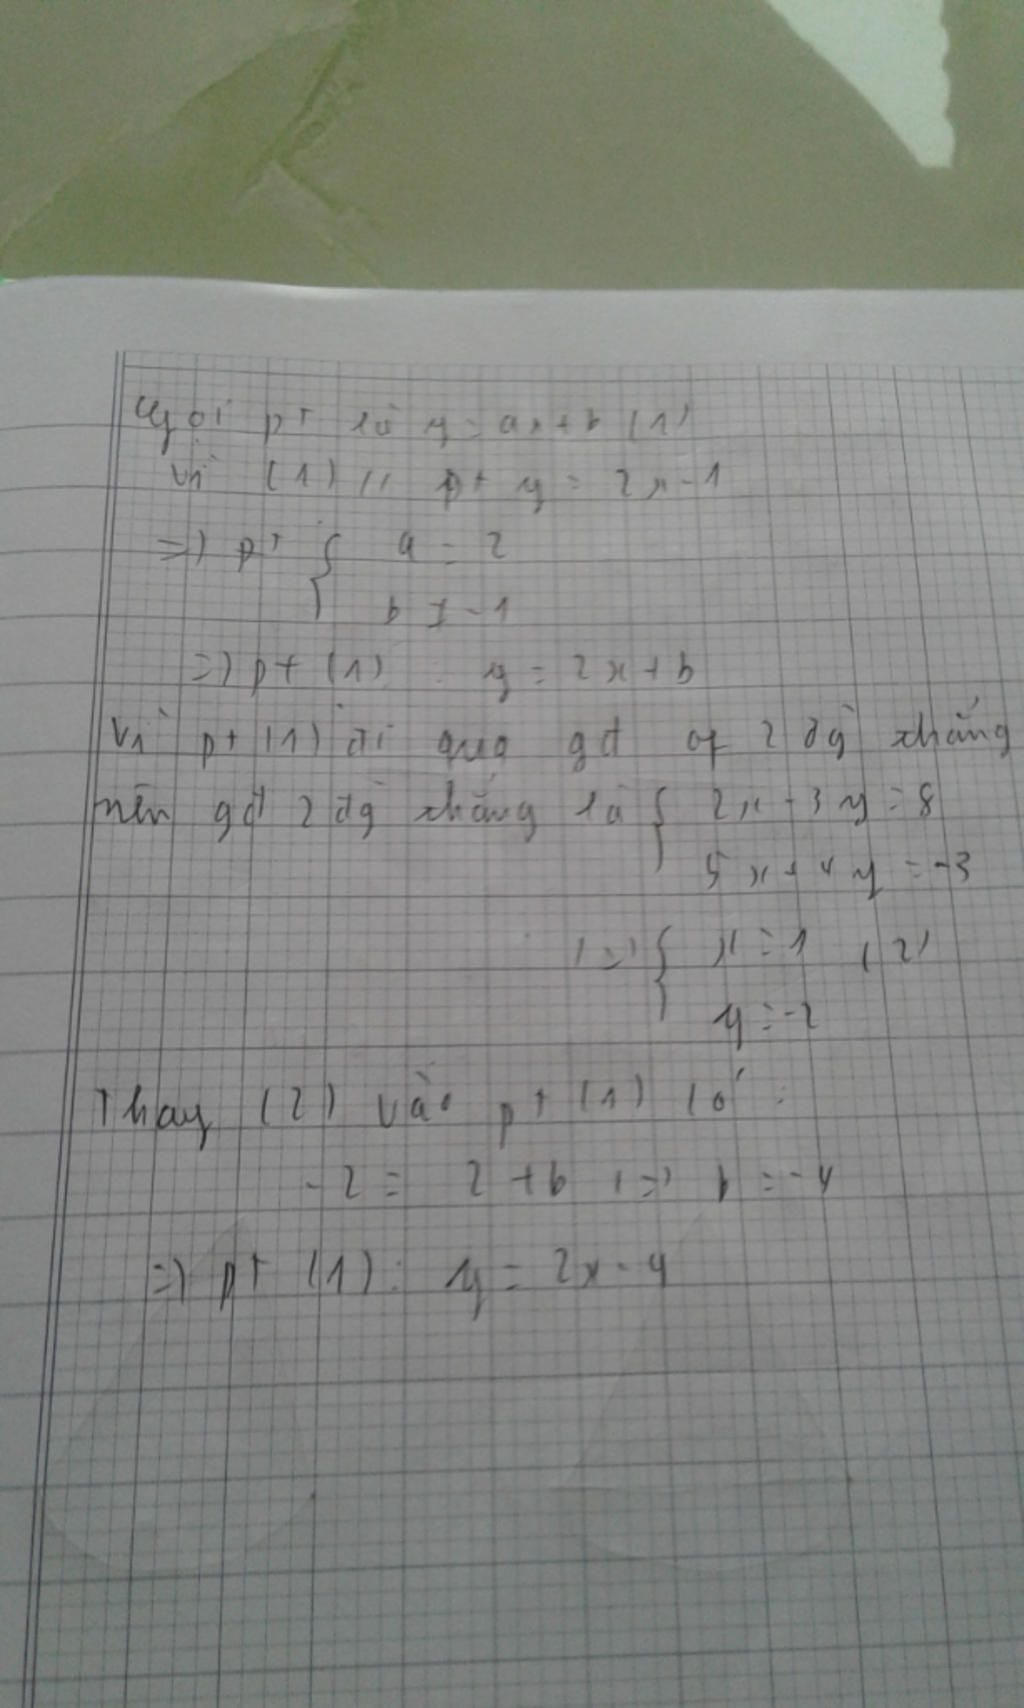 Gọi pt là y = ax + b (1)
Vì (1) // pt y = 2x - 1
=) pt { a = 2
b ≠ -1
=) pt (1) : y = 2x + b
Vì pt (1) đi qua gđ of 2 đg thẳng
nên gđ 2 đg thẳng là { 2x - 3y = 8
5x + 4y = -3
(=) { x = 1 (2)
y = -2
Thay (2) vào pt (1) có :
-2 = 2 + b (=) b = -4
=) pt (1) : y = 2x - 4